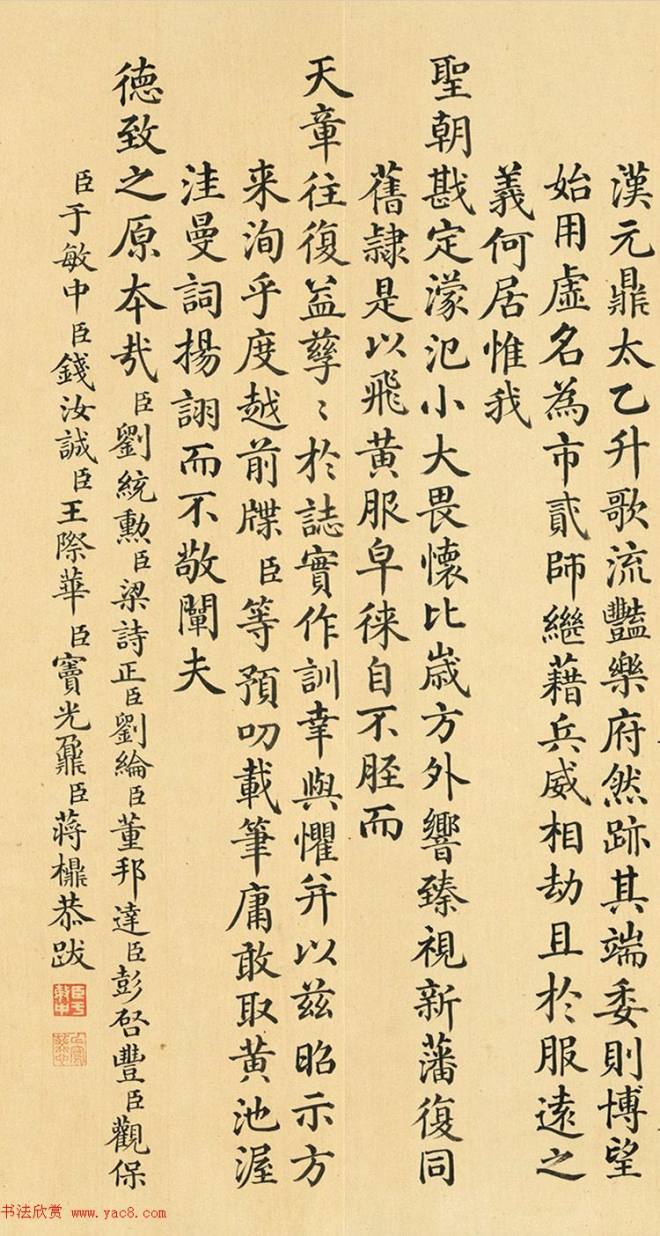 漢元鼎太乙升歌流豔樂府然跡其端委則博望
始用虛名為市貳師繼藉兵威相劫且於服遠之
義何居惟我
聖朝戡定濛汜小大畏懷比歲方外響臻視新藩復同
舊隸是以飛黃服皁徠自不脛而
天章往復益孳〻於誌實作訓幸與懼并以茲昭示方
来洵乎度越前牒臣等預叨載筆庸敢取黃池渥
洼曼詞揚詡而不敬闡夫
德致之原本㢤臣劉統勲臣梁詩正臣劉綸臣董邦達臣彭啓豐臣觀保
臣于敏中臣錢汝誠臣王際華臣竇光鼐臣蔣檙恭跋
臣于敏中
书法欣赏 www.yac8.com